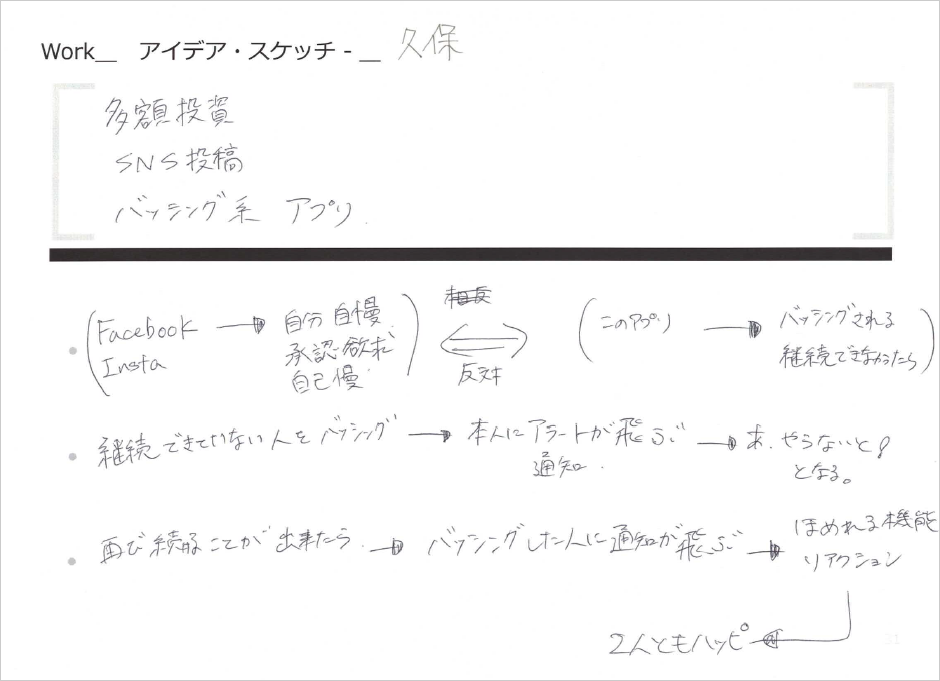 Work__ アイデア・スケッチ - __ 久保
多額投資
SNS投稿
バッシング系 アプリ.
Facebook → 自分自慢
Insta 承認欲求
自己慢
相反
反対
このアプリ → バッシングされる
継続できなかったら
継続できていない人をバッシング → 本人にアラートが飛ぶ → あ、やらないと!
通知. となる。
再び続ることが出来たら. → バッシングした人に通知が飛ぶ → ほめれる機能
リアクション
2人ともハッピー
31